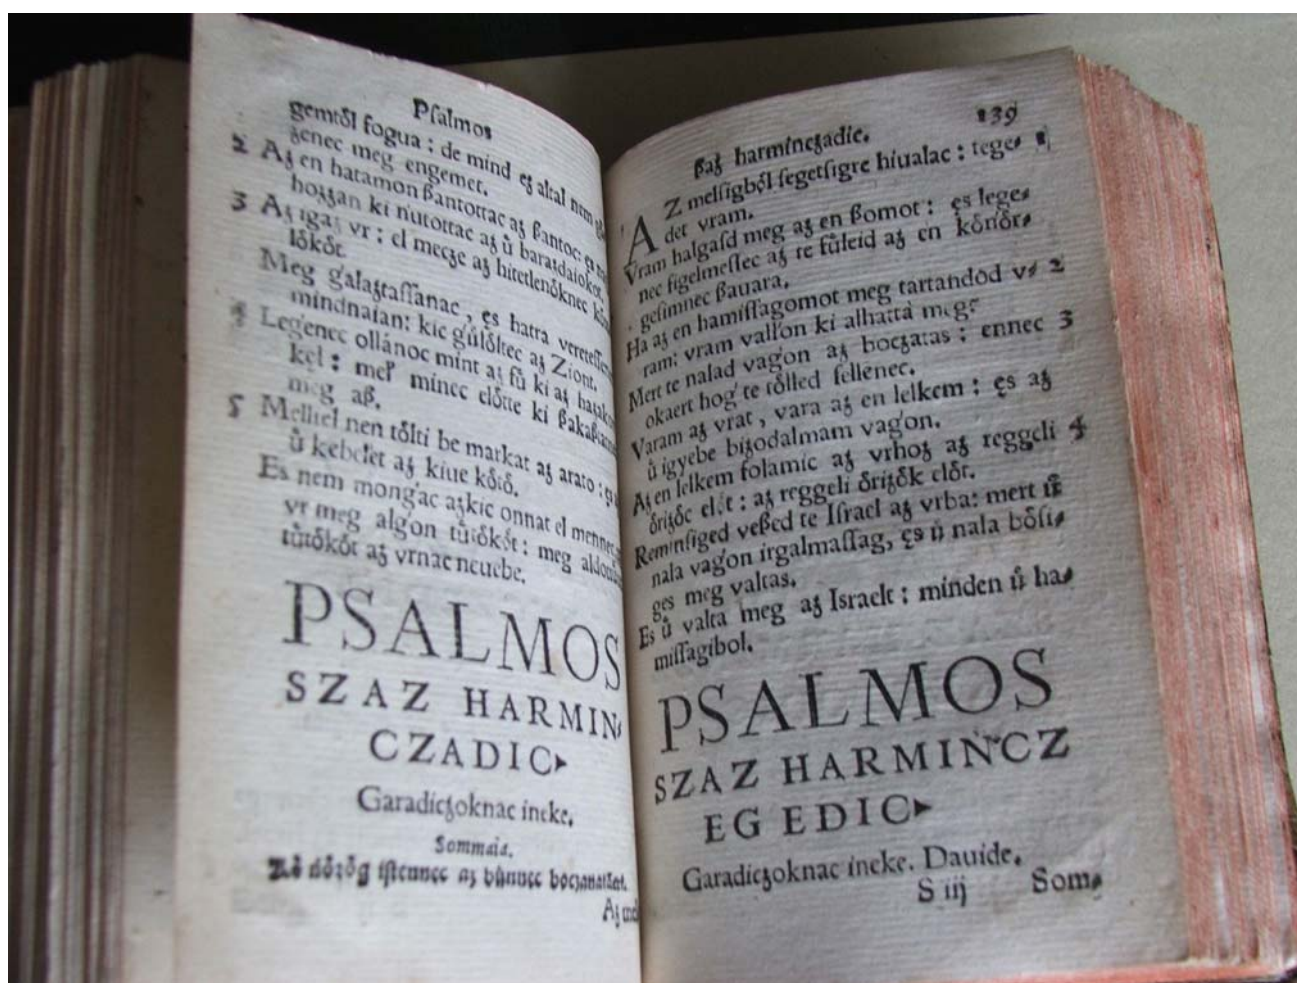 Pſalmos
gemtől fogua : de mind ęs altal nem
ʒenec meg engemet.
2 Aʒ en hatamon ßantottac aʒ ßantoc: ęs
hoʒʒan ki ńutottac aʒ ů baraʒdaiokot.
3 Aʒ igaʒ vr : el mecʒe aʒ hitetlenőknec
lőkőt
Meg ǵalaʒtaſſanac , ęs hatra
mindnaian: kic ǵůlőltec aʒ Ziont.
4 Leǵenec ollánoc mint aʒ fů ki aʒ
kel : mel minec előtte ki
meg aß.
5 Mellel nen tőlti be markat aʒ arato :
ů kebelet aʒ kiue kőtő.
Es nem monǵac aʒkic onnat el mennec
vr meg alǵon tůtőkőt : meg
tůtőkőt aʒ vrnac neuebe.
PSALMOS
SZAZ HARMIN⸗
CZADIC▸
Garadicʒoknac ineke.
Sommaia.
iſtennec aʒ bůnnec
Aʒ
139
ßaʒ harmincʒadic.
AZ melſigből ſegetſigre hiualac : tege⸗ 1
det vram.
Vram halgaſd meg aʒ en ßomot : ęs leǵe⸗
nec figelmeſſec aʒ te fůleid aʒ en kőńőr⸗
geſimnec ßauara.
Ha aʒ en hamiſſagomot meg tartandod v⸗ 2
ram: vram valĺon ki alhatta meg?
Mert te nalad vaǵon aʒ bocʒatas : ennec 3
okaert hoǵ te tőlled fellenec.
Varam aʒ vrat , vara aʒ en lelkem : ęs aʒ
ů igyebe biʒodalmam vaǵon.
Aʒ en lelkem folamic aʒ vrhoʒ aʒ reggeli 4
őriʒőc előt : aʒ reggeli őriʒők előt.
Reminſiged veßed te Iſrael aʒ vrba: mert ů
nala vaǵon irgalmaſſag, ęs ů nala bőſi⸗
ges meg valtas.
Es ů valta meg aʒ Israelt : minden ů ha⸗
miſſagibol.
PSALMOS
SZAZ HARMINCZ
EG EDIC▸
Garadicʒoknac ineke. Dauide.
S iij Som⸗